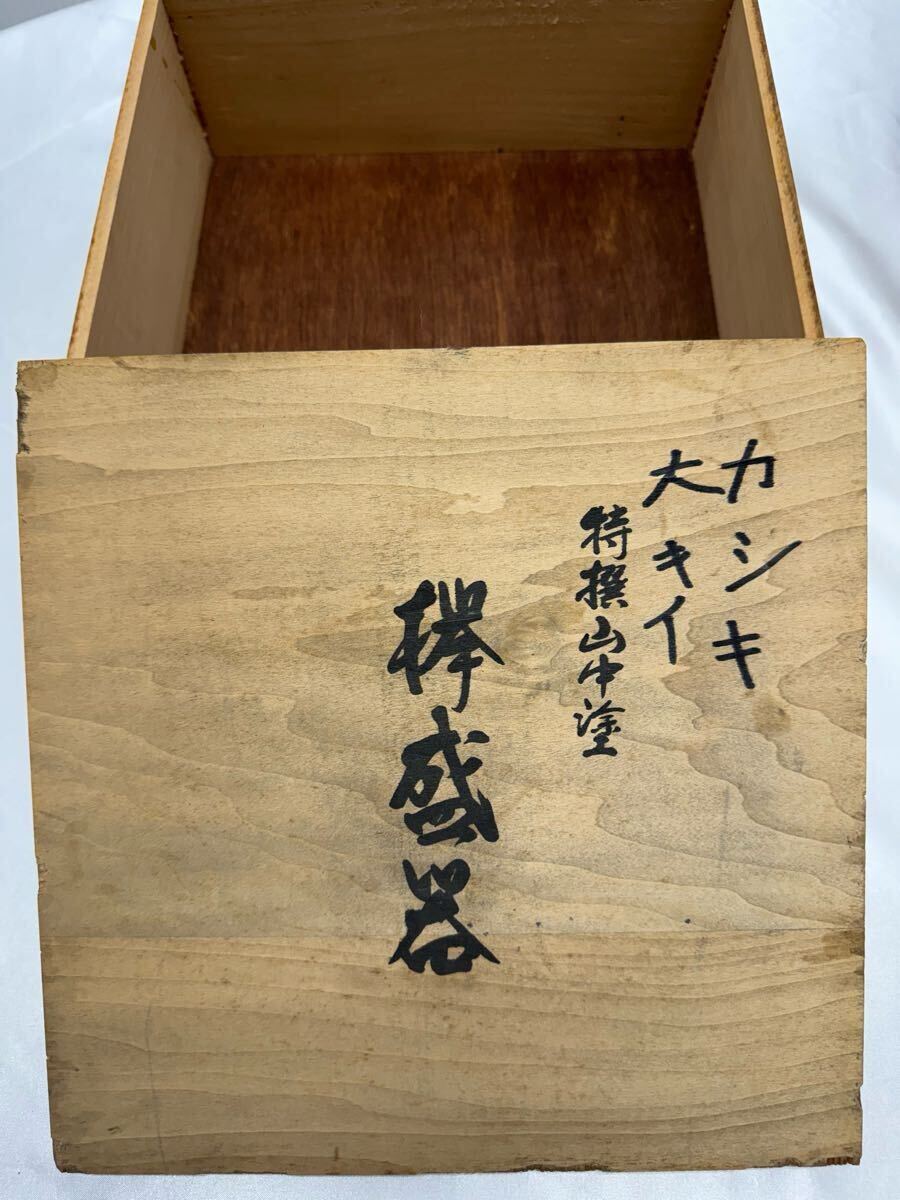 カシキ
大キイ
特撰山中塗
欅盛器